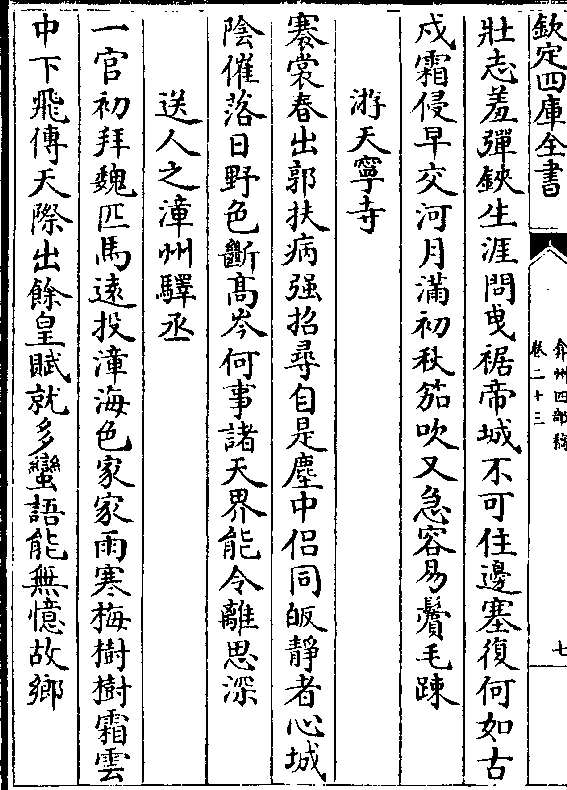 欽定四庫全書
弇州四部稿
卷二十三
七
壯志羞彈鋏生涯問曵裾帝城不可住邊塞復何如古
戍霜侵早交河月滿初秋笳吹又急容易鬢毛踈
游天寧寺
褰裳春出郭扶病强招尋自是塵中侣同皈靜者心城
陰催落日野色斷髙岑何事諸天界能令離思深
送人之漳州驛丞
一官初拜魏匹馬逺投漳海色家家雨寒梅樹樹霜雲
中下飛傳天際出餘皇賦就多蠻語能無憶故鄉